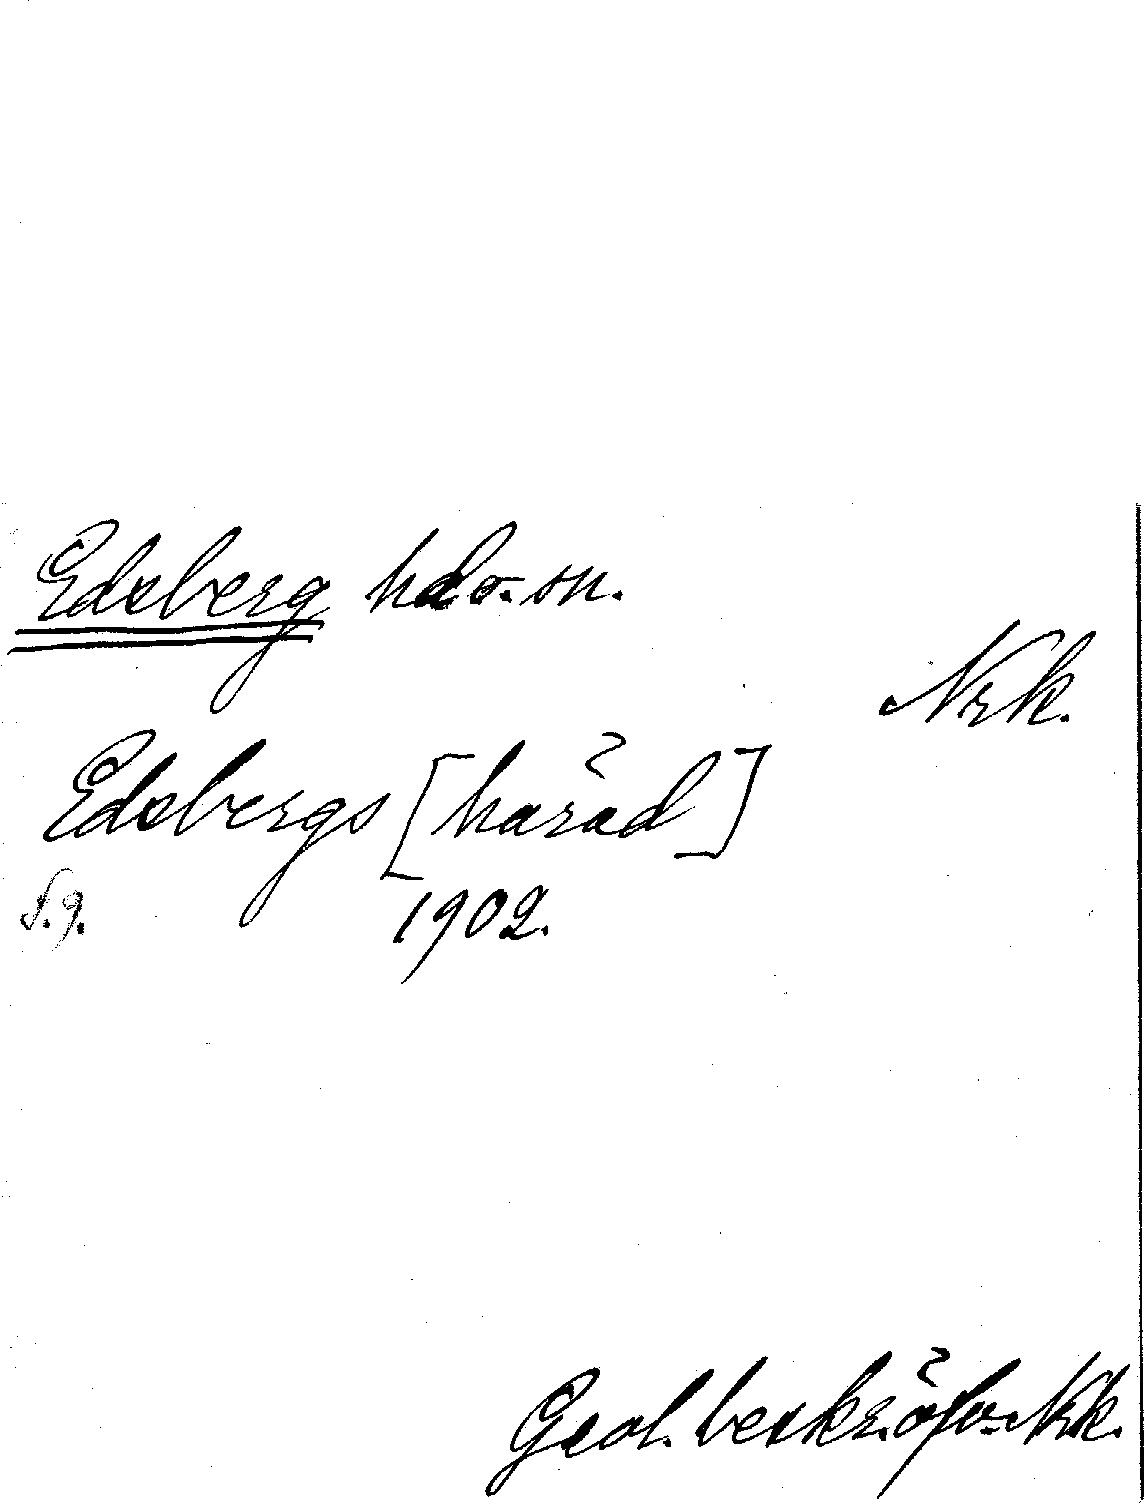 Edsberg hd o. sn.
Nrk.
Edsbergs [härad]
S. 9. 1902.
Geol. beskr. öfv. Nk.